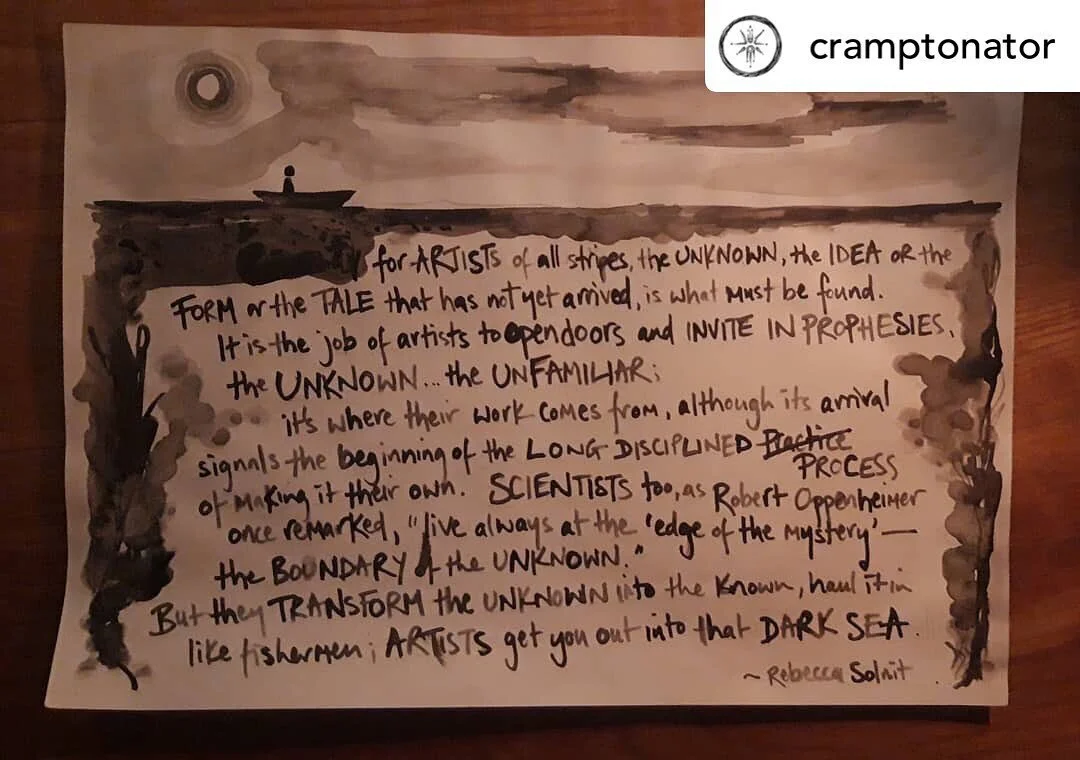 cramptonator
for ARTISTS of all stripes, the UNKNOWN, the IDEA OR the
FORM or the TALE that has not yet arrived, is what must be found.
It is the job of artists to open doors and INVITE IN PROPHESIES,
the UNKNOWN... the UNFAMILIAR;
it's where their work comes from, although its arrival
signals the beginning of the LONG DISCIPLINED Practice
PROCESS
of making it their own. SCIENTISTS too, as Robert Oppenheimer
once remarked, "live always at the 'edge of the mystery' —
the BOUNDARY of the UNKNOWN."
But they TRANSFORM the UNKNOWN into the known, haul it in
like fishermen; ARTISTS get you out into that DARK SEA.
~ Rebecca Solnit